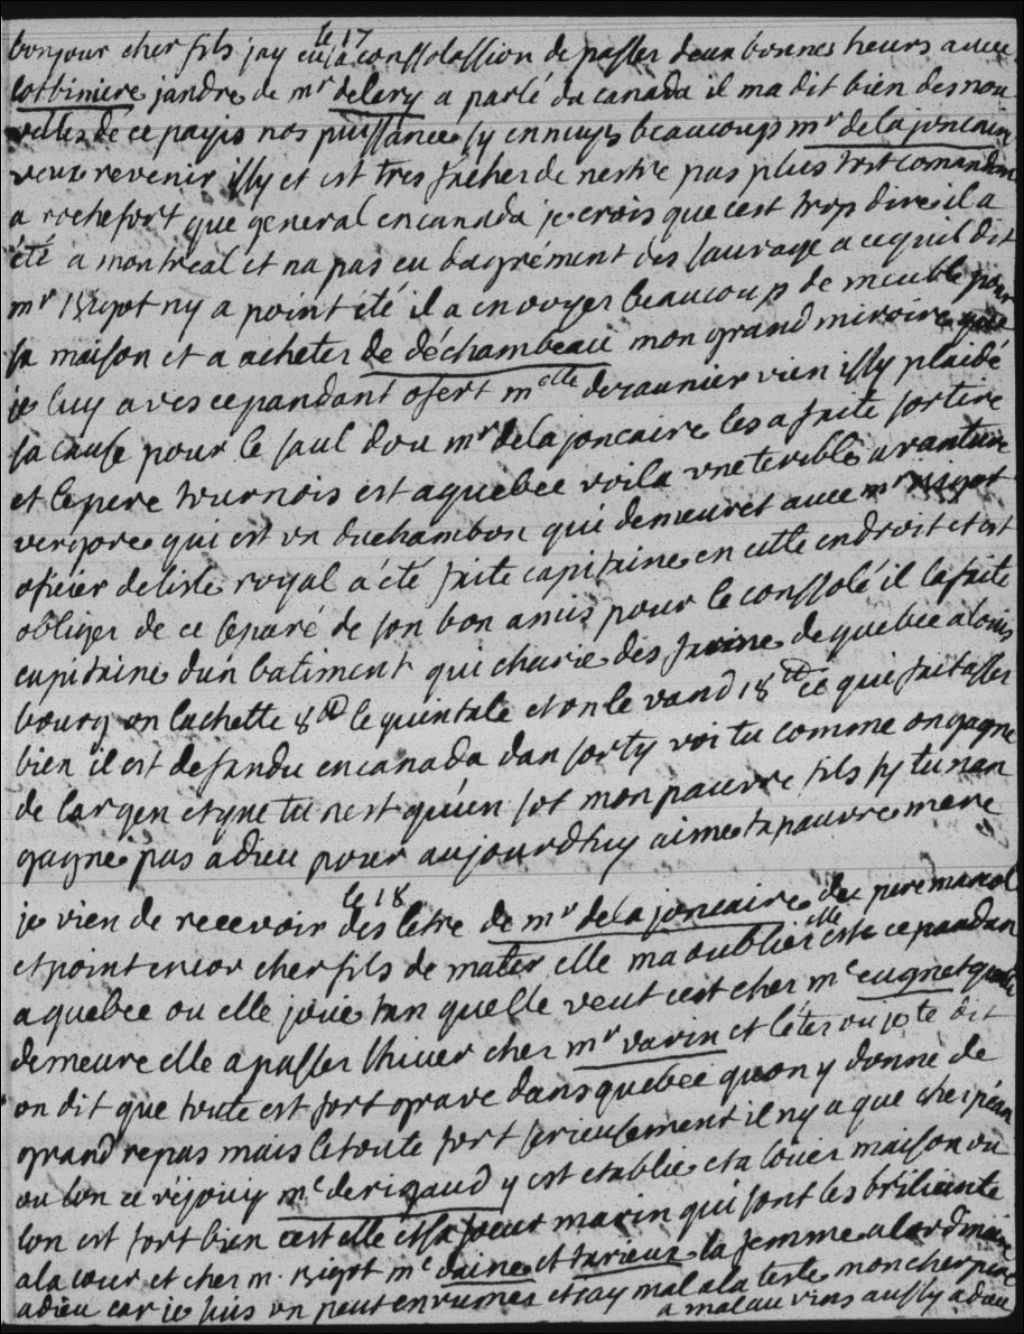 le 17
bonjour cher fils jay eu la conssolassion de passer deux bonnes heurs avec
lotbiniere jandre de mr delery a parlé du canada il ma dit bien des nou
velles de ce payis nos puissance sy ennuys beaucoups mr de la joncaire
veux revenir issy et est tres facher de nestre pas plus tost comandan
a rochefort que general en canada je crois que cest trop dire il a
été a montreal et na pas eu dagrément des sauvage a ce quil dit
mr Bigot ny a point été il a envoyer beaucoup de meuble pour
sa maison et a acheter de déchambeau mon grand miroire que
je luy aves cepandant ofert melle dezaunier vien issy plaidé
sa cause pour le saul dou mr de la joncaire les a faite sortire
et le pere tournois est a quebec voila vne terible avanture
vergore qui est vn duchambon qui demeuret avec mr Bigot
oficier de lisle royal a été faite capitaine en cette endroit et est
obliger de ce separé de son bon amis pour le conssolé il la faite
capitaine dun batiment qui charie des farine de quebec a louis
bourg on lachette 8 le quintale et on le vand 18 ce qui fait asser
bien il est defandu en canada dan sorty voi tu comme on gagne
de largen et que tu nest quun sot mon pauvre fils sy tu nan
gagne pas adieu pour aujourdhuy aime ta pauvre mere
le 18
je vien de recevoir des letre de mr de la joncaire du pere
et point encor cher fils de mater elle ma oublier elle est cepandan
a quebec ou elle joue tan quelle veut cest cher me cugnet quelle
demeure elle a passer lhiver cher mr varin et léter ou je te dit
on dit que toute est fort grave dans quebec quon y donne de
grand repas mais le toute fort serieusement il ny a que cher péan
ou lon ce réjouiy me de rigaud y est etablie et a louer maison ou
lon est fort bien cest elle et sa soeur marin qui font les briliante
a la cour et cher m. Bigot me daine et tarieux la femme a lordinaire
adieu car je suis vn peut enrumer et jay mal a la teste mon cher pere
a mal au yieus aussy adieu